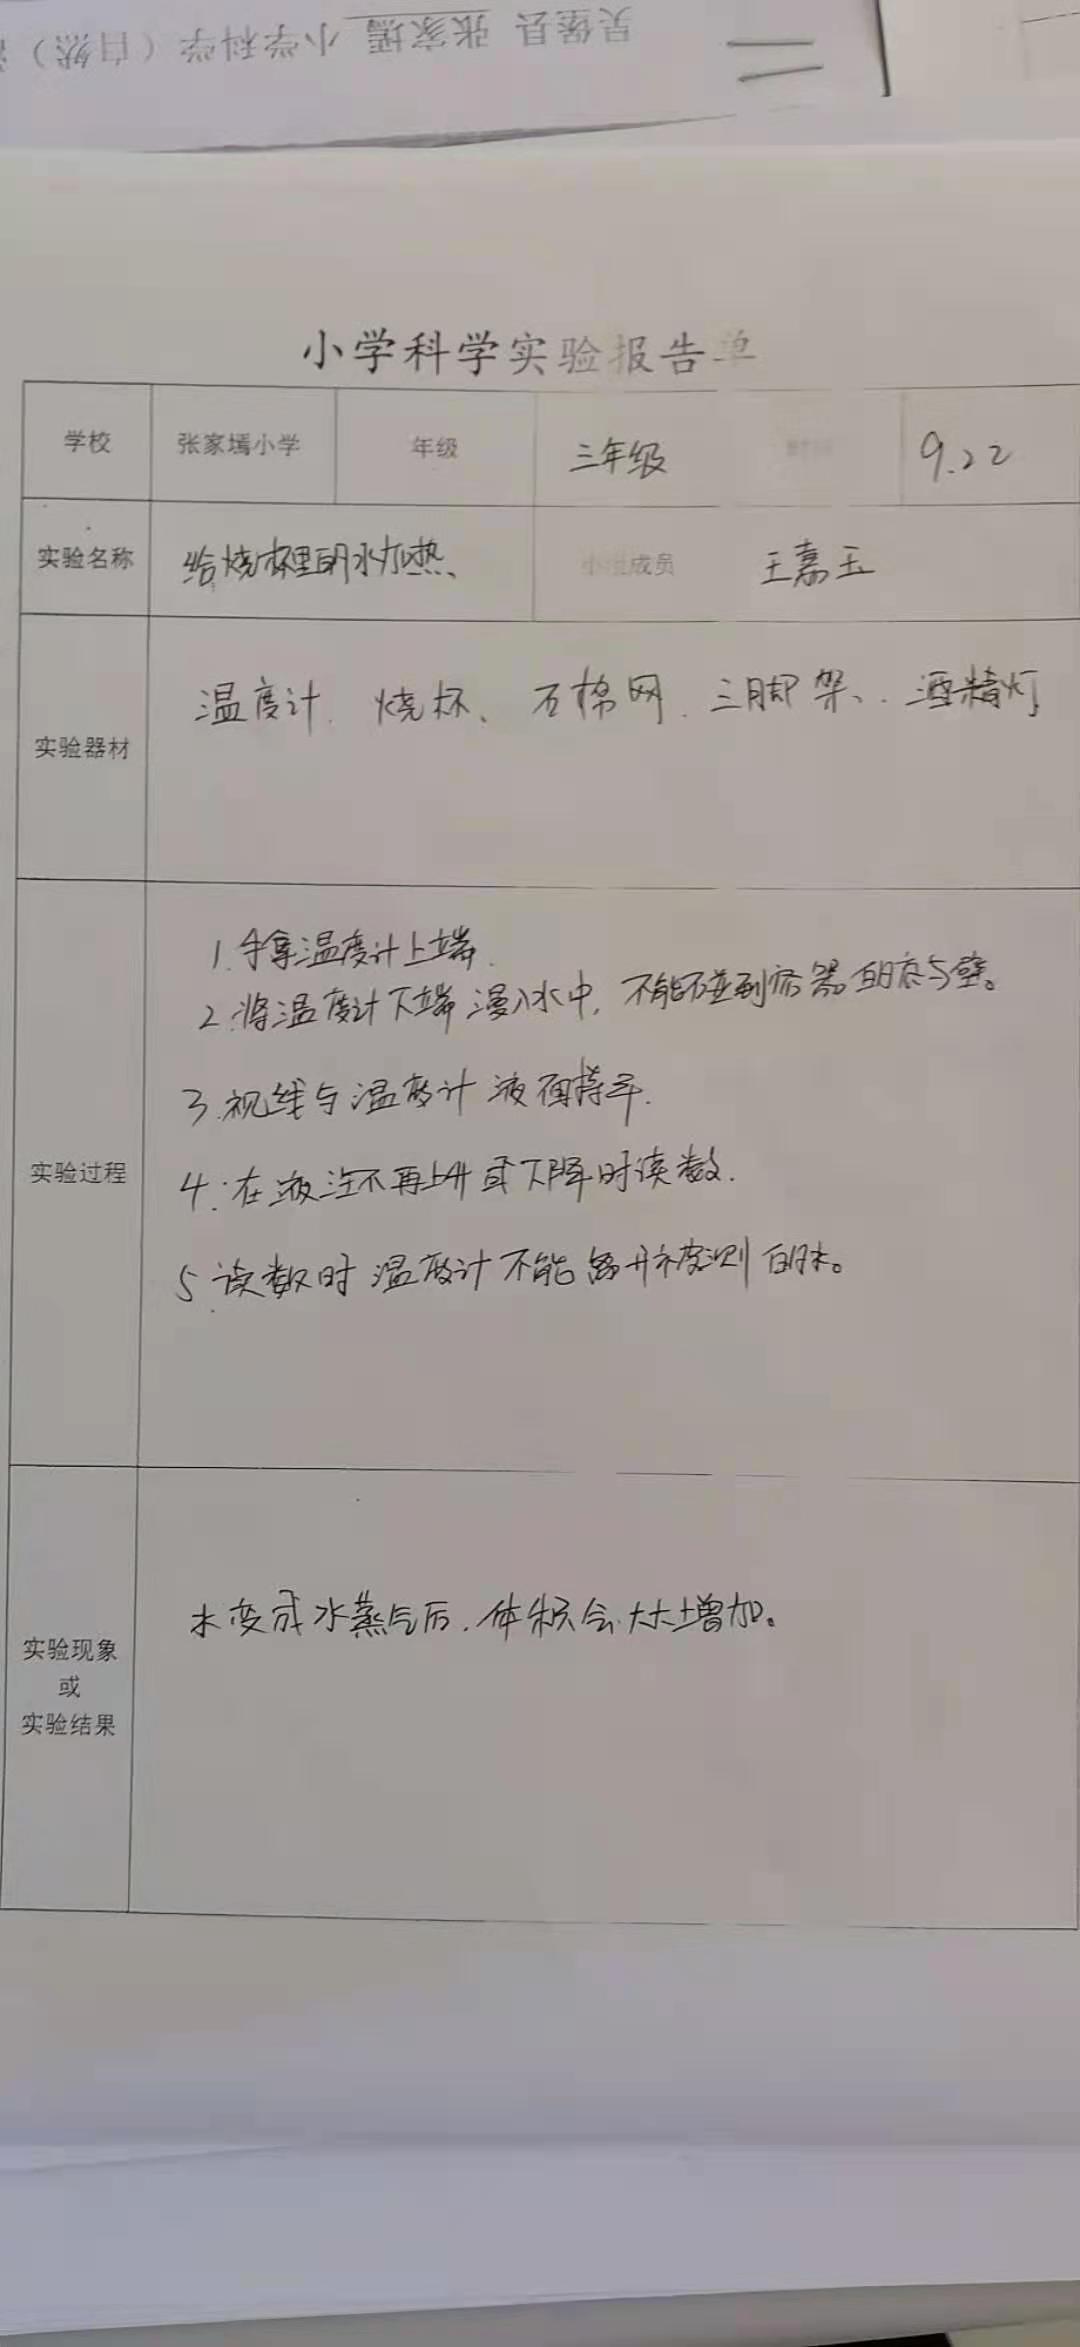 吴堡县 张家墕 小学科学（自然）
小学科学实验报告单
学校 张家墕小学 年级 三年级 时间 9.22
实验名称 给烧杯里的水加热 小组成员 王嘉玉
实验器材 温度计、烧杯、石棉网、三脚架、酒精灯
1.手拿温度计上端.
2.将温度计下端浸入水中,不能碰到容器的底与壁。
3.视线与温度计液面持平.
实验过程
4.在液注不再上升或下降时读数.
5.读数时温度计不能离开被测的水。
水变成水蒸气后.体积会大大增加。
实验现象
或
实验结果